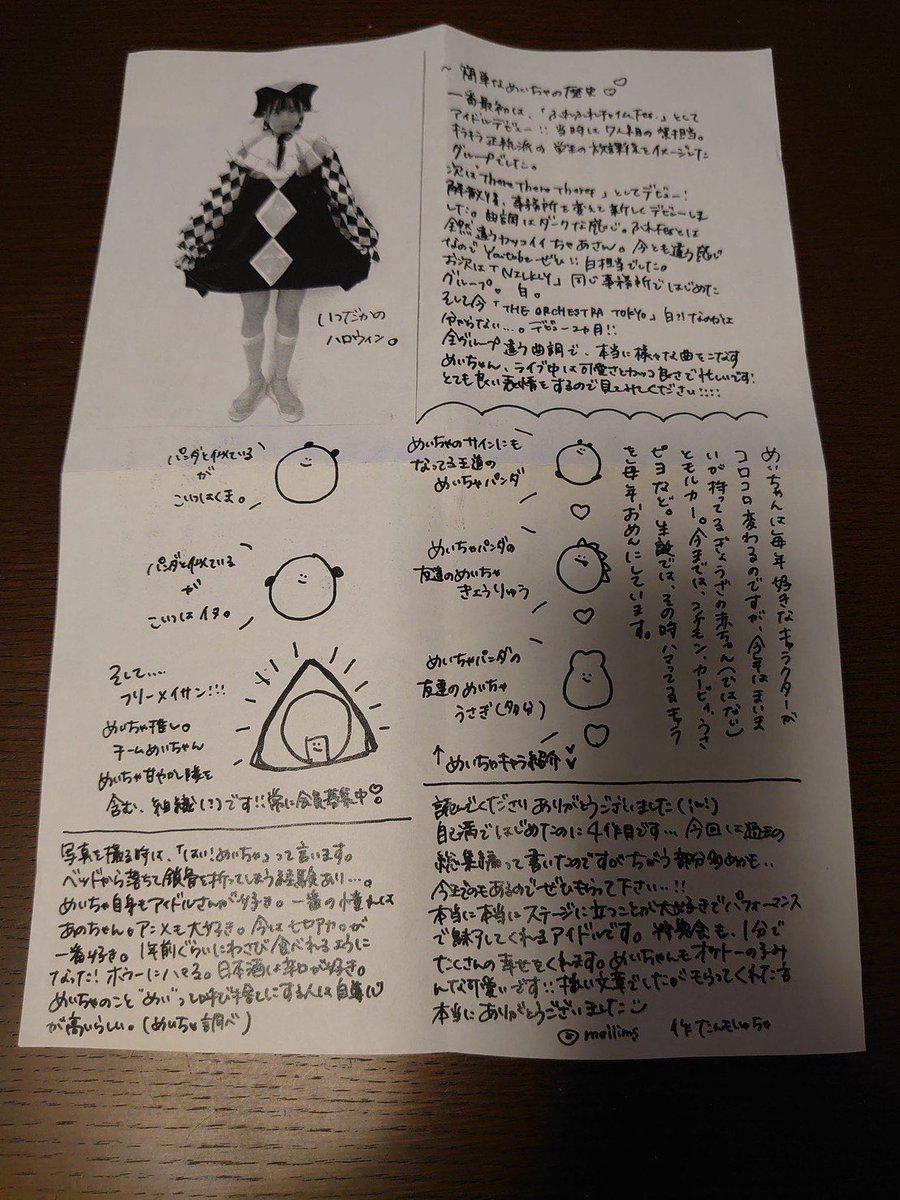 いつだかの
ハロウィン。
~ 簡単なめいちゃの歴史 ♡
一番最初は、「ふわふわタイムfer.」として
アイドルデビュー!! 当時は7人組の紫担当。
キラキラ正統派の 学生の放課後をイメージした
グループでした。
次は There There Theres 」としてデビュー!
解散後、事務所を変えて新しくデビューしま
した。曲調はダークな感じ。
全然違うカッコイイちゃあさん。今とも違う感じ
なのでYoutubeぜひ!! 白担当でした。
お次は「NILKLY」同じ事務所ではじめた
グループ。白。
そして今「THE ORCHESTRA TOKYO」白?! なのかは
分からない…。デビュー2ヶ月!!
全グループ違う曲調で、本当に様々な曲をこなす
めいちゃん、ライブ中は可愛さとカッコ良さで忙しいです!
とても良い表情をするので見てみてください!!!!
パンダと似ている
が
こいつはくま。
パンダと似ている
が
こいつはイタ。
そして....
フリーメイサン!!!
めいちゃ推し。
チームめいちゃん
めいちゃ甘やかし隊を
含む、組織(?)です!! 常に会員募集中♡
めいちゃのサインにも
なってる王道の
めいちゃパンダ
めいちゃパンダの
友達のめいちゃ
きょうりゅう
めいちゃパンダの
友達のめいちゃ
うさぎ(多分)
↑ めいちゃキャラ紹介♡
めいちゃんは毎年好きなキャラクターが
コロコロ変わるのですが、今年はまいま
いが持ってるぎょうざの赤ちゃん(ではない)
とモルカー。今までは、コウペンちゃん、カービィ、うさ
ピヨなど。生誕では、その時ハマってるキャラ
を毎年おめんにしています。
写真を撮る時は、「はい!めいちゃ」って言います。
ベッドから落ちて鎖骨を折ってしまう経験あり…。
めいちゃ自身もアイドルさんが好き。一番の憧れは
あのちゃん。アニメも大好き。今は が
一番好き。1年前ぐらいにわさび食べれるように
なった! ボウーにハマる。日本酒は辛口が好き。
めいちゃのこと"めい"って呼び捨てにする人は自尊心
が高いらしい。(めいちゃ調べ)
読んでくださいありがとうございました(:ω:)
自己満ではじめたのに4作目です… 今回は過去の
総集編って書いたのですがちがう部分多めかも..
今までのもあるのでぜひもらって下さい..!!
本当に本当にステージに立つことが大好きでパフォーマンス
で魅了してくれるアイドルです。特典会も、1分で
たくさんの幸せをくれます。めいちゃんもオケトーの子み
んな可愛いです!! 拙い文章でしたがもらってくれた方
本当にありがとうございました
mellims 作 たんもしゅちゃ